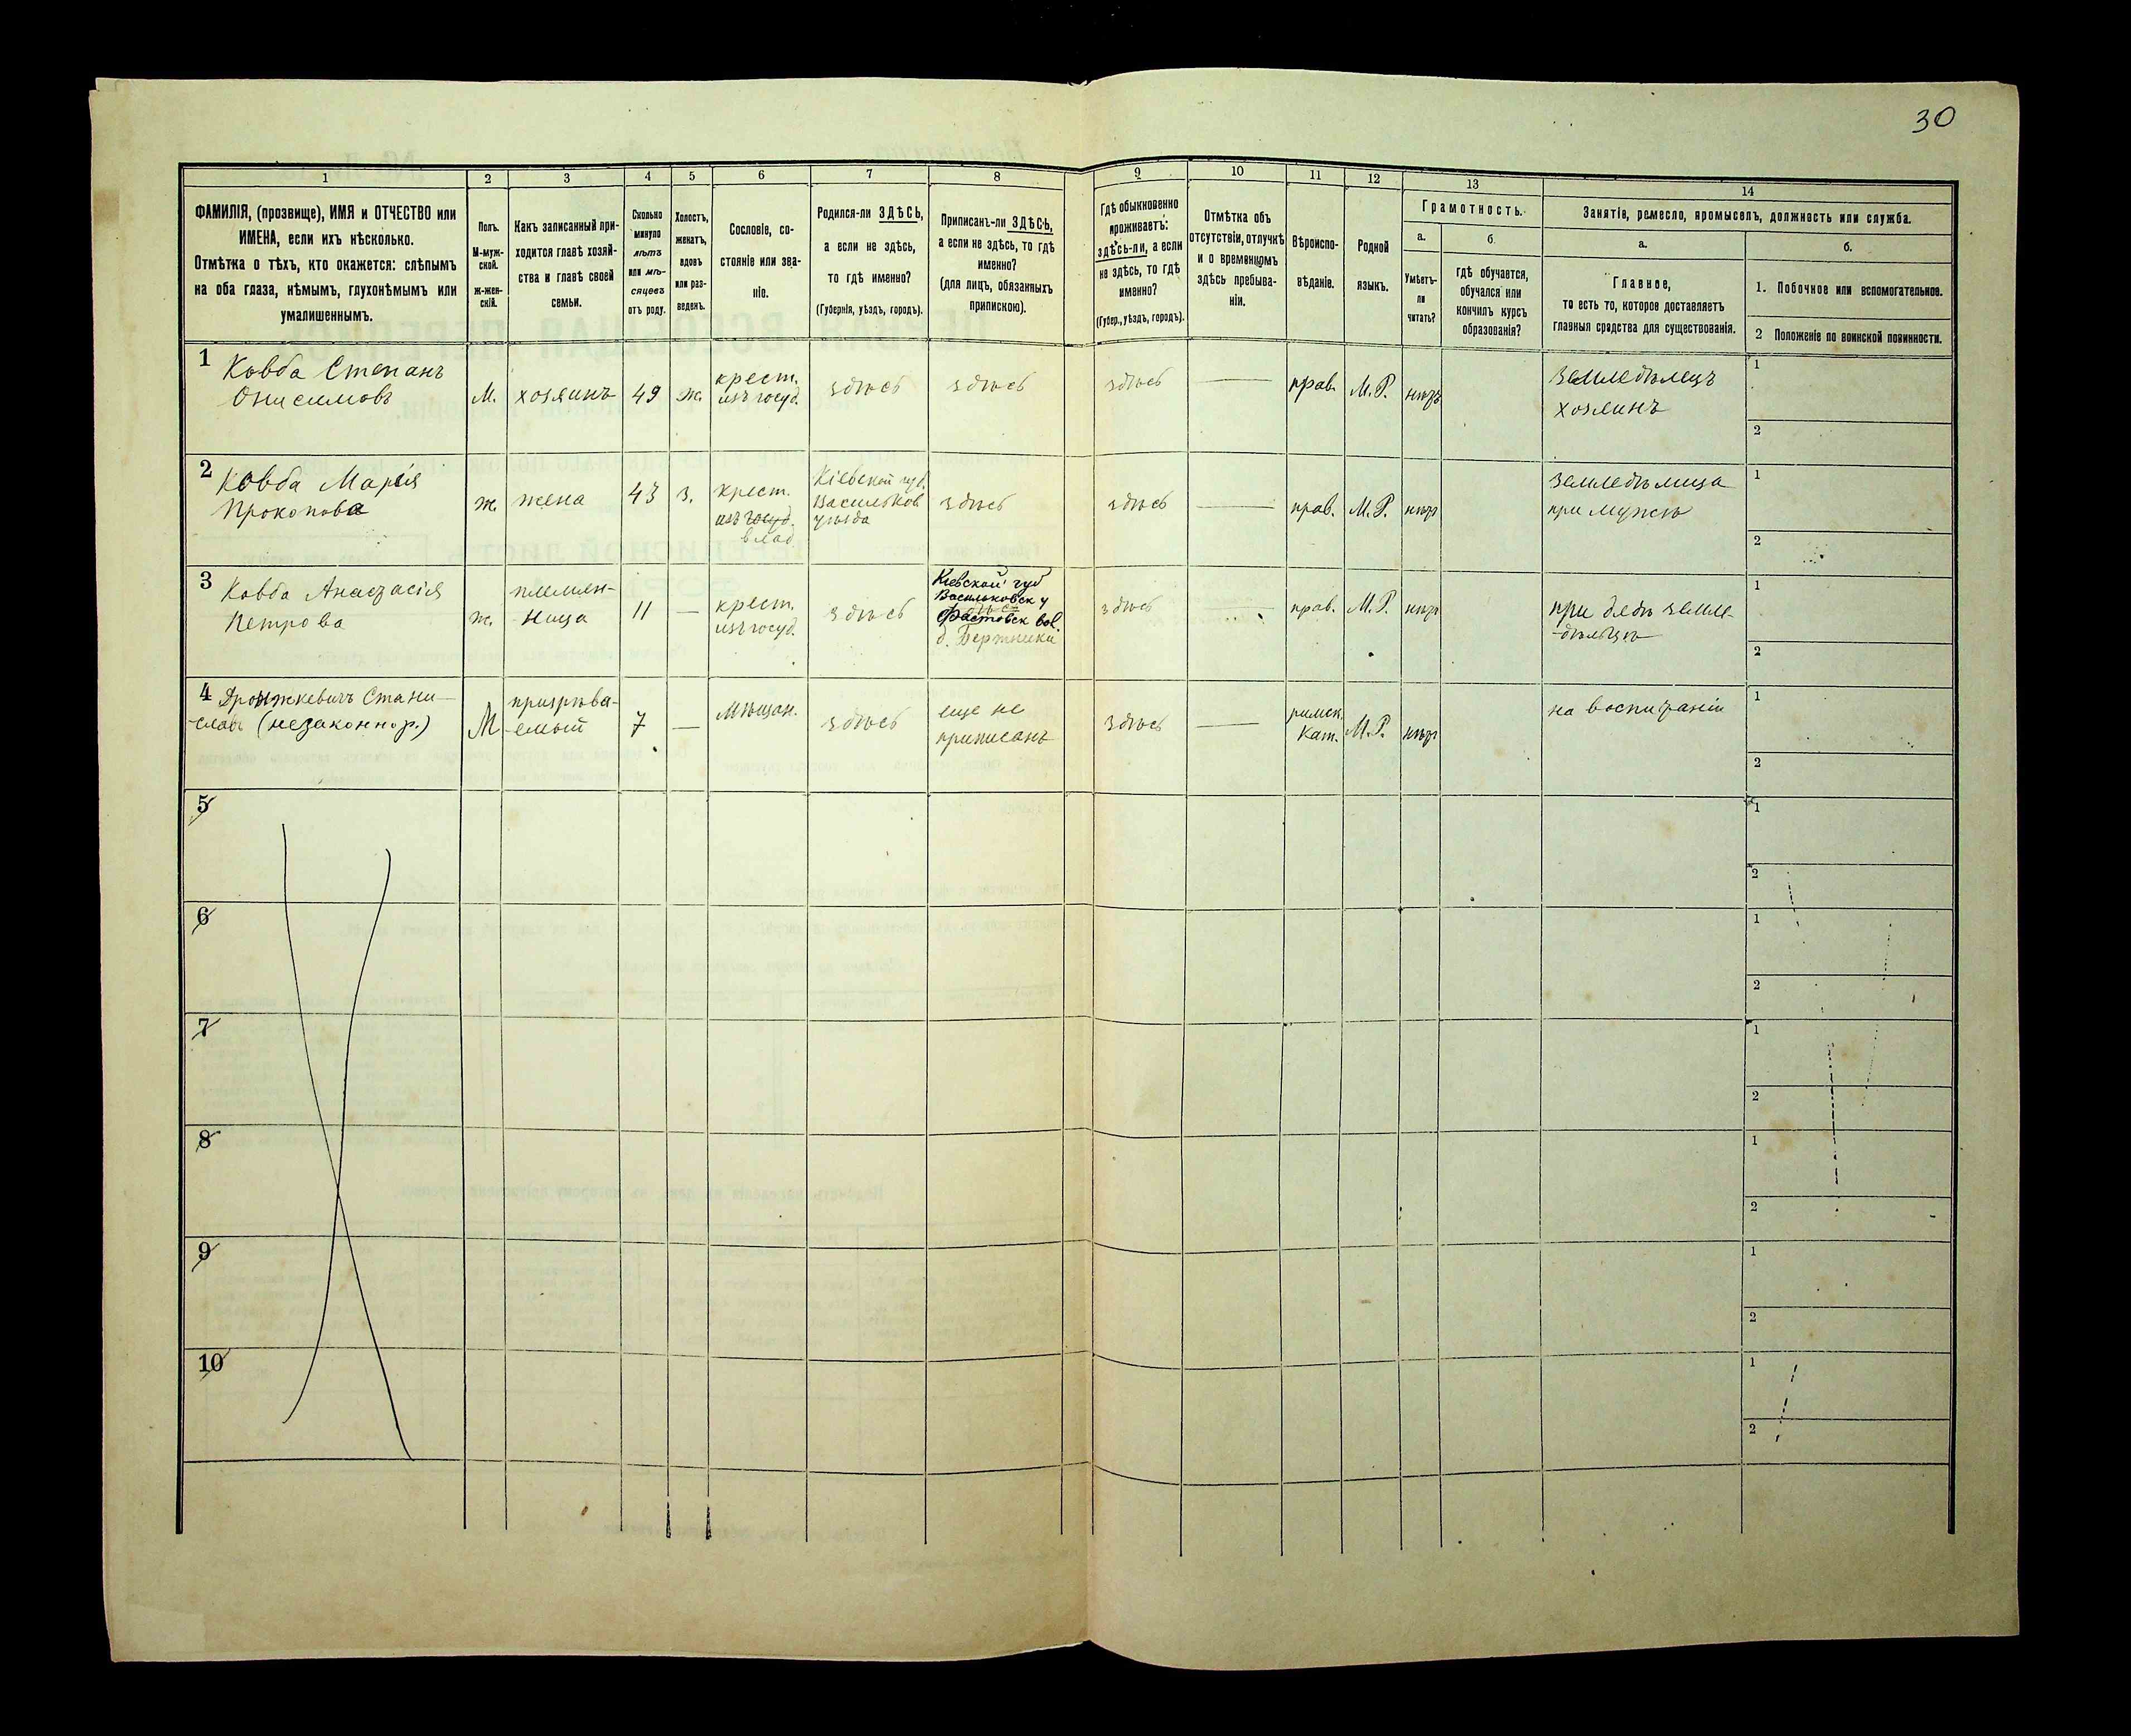 30
1
2
3
4
5
6
7
8
9
10
11
12
13
14
ФАМИЛІЯ, (прозвище), ИМЯ и ОТЧЕСТВО или
ИМЕНА, если ихъ нѣсколько.
Отмѣтка о тѣхъ, кто окажется: слѣпымъ
на оба глаза, нѣмымъ, глухонѣмымъ или
умалишеннымъ.
Полъ.
М-муж-
ской.
Ж-жен-
скій.
Какъ записанный при-
ходится главѣ хозяй-
ства и главѣ своей
семьи.
Сколько
минуло
лѣтъ
или мѣ-
сяцевъ
отъ роду.
Холостъ,
женатъ,
вдовъ
или раз-
веденъ.
Сословіе, со-
стояніе или зва-
ніе.
Родился-ли ЗДѢСЬ,
а если не здѣсь,
то гдѣ именно?
(Губернія, уѣздъ, городъ).
Приписанъ-ли ЗДѢСЬ,
а если не здѣсь, то гдѣ
именно?
(для лицъ, обязанныхъ
припискою).
Гдѣ обыкновенно
проживаетъ:
здѣсь-ли, а если
не здѣсь, то гдѣ
именно?
(Губер., уѣздъ, городъ).
Отмѣтка объ
отсутствіи, отлучкѣ
и о временномъ
здѣсь пребыва-
ніи.
Вѣроиспо-
вѣданіе.
Родной
языкъ.
Грамотность.
а.
Умѣетъ-
ли
читать?
б.
гдѣ обучается,
обучался или
кончилъ курсъ
образованія?
Занятіе, ремесло, промыселъ, должность или служба.
а.
Главное,
то есть то, которое доставляетъ
главныя средства для существованія.
б.
1. Побочное или вспомогательное.
2 Положеніе по воинской повинности.
1 Ковба Степанъ
Онисимовъ
М.
хозяинъ
49
ж.
крест.
изъ госуд.
здѣсь
здѣсь
здѣсь
прав.
М.Р.
нѣтъ
земледѣлецъ
хозяинъ
1
2
2 Ковба Марія
Прокопова
ж.
жена
43
з.
крест.
изъ госуд.
влад
Кіевской губ.
Васильков.
уѣзда
здѣсь
здѣсь
прав.
М.Р.
нѣтъ
земледѣлица
при мужѣ
1
2
3 Ковба Анастасія
Петрова
ж.
племян-
ница
11
крест.
изъ госуд.
здѣсь
Кіевской губ
Васильковск у
Фастовск вол.
здѣсь
прав.
М.Р.
нѣтъ
при дядѣ земле-
дѣльцѣ
1
2
4 Дронжкевичъ Стани-
славъ (незаконнор.)
М
призрѣва-
емый
7
мѣщан.
здѣсь
еще не
приписанъ
здѣсь
римск.
кат.
М.Р.
нѣтъ
на воспитаніи
1
2
5
1
2
6
1
2
7
1
2
8
1
2
9
1
2
10
1
2